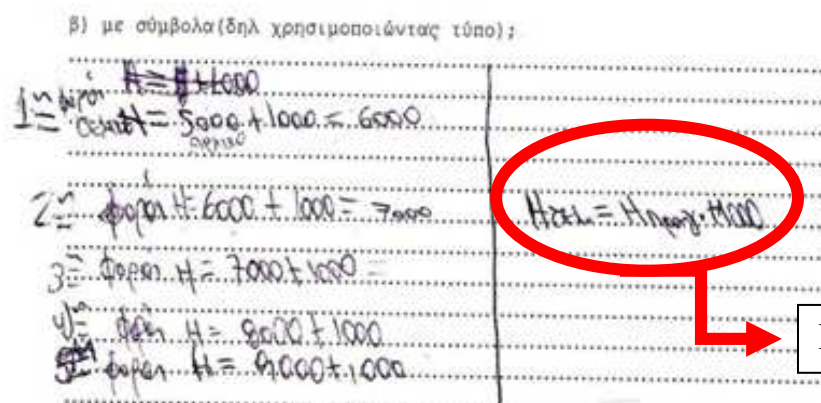 β) με σύμβολα(δηλ χρησιμοποιώντας τύπο);
H = +1000
1η φορά H = 5000 + 1000 = 6000
αρχικό
2η φορά H = 6000 + 1000 = 7000
3η φορά H = 7000 + 1000 =
4η φορά H = 8000 + 1000
5η φορά H = 9000 + 1000
Hτελ. = Hπροηγ. +1000